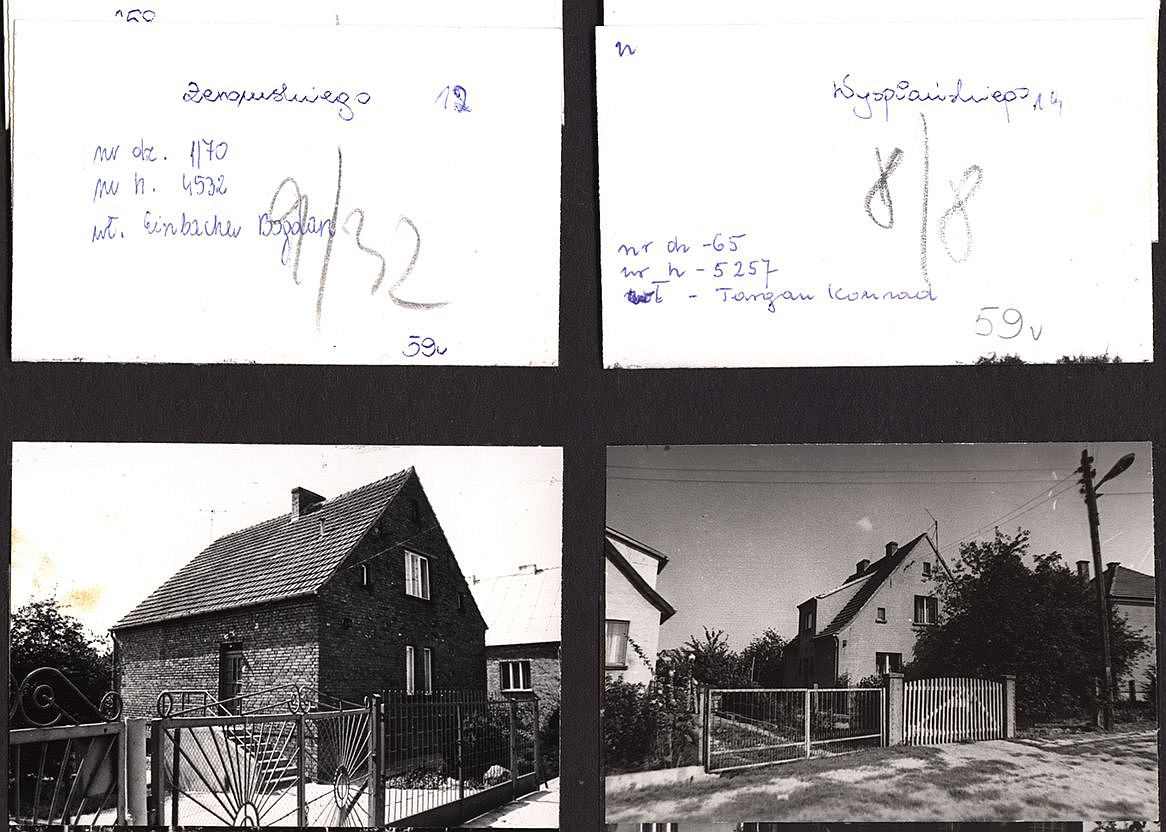 150
Żeromskiego 12
nr dz. 1170
nr h. 4532
wł. Einbacher Bogdan
91/32
59v
n
Wyspiańskiego 14
8/8
nr dz - 65
nr h - 5257
wł - Targan Konrad
59v